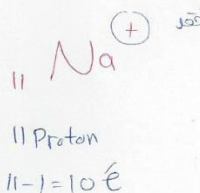 11 Na +
11 Proton
11-1=10 é